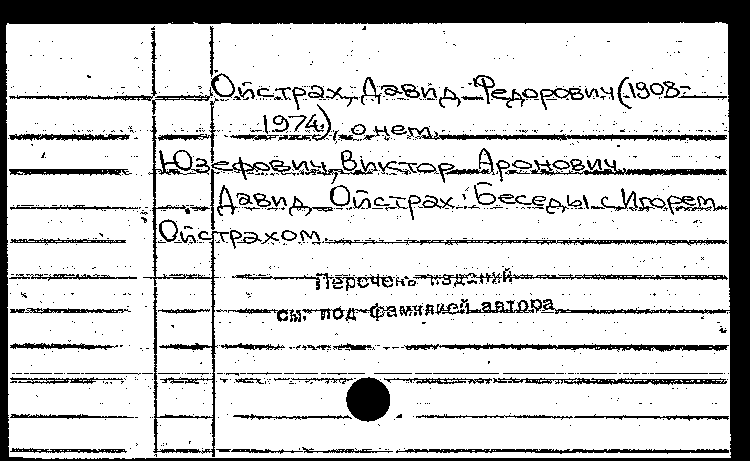 Ойстрах, Давид Федорович (1908-
1974), о нем.
Юзефович, Виктор Аронович
Давид Ойстрах: Беседы с Игорем
Ойстрахом.
Перечень изданий
см. под фамилией автора